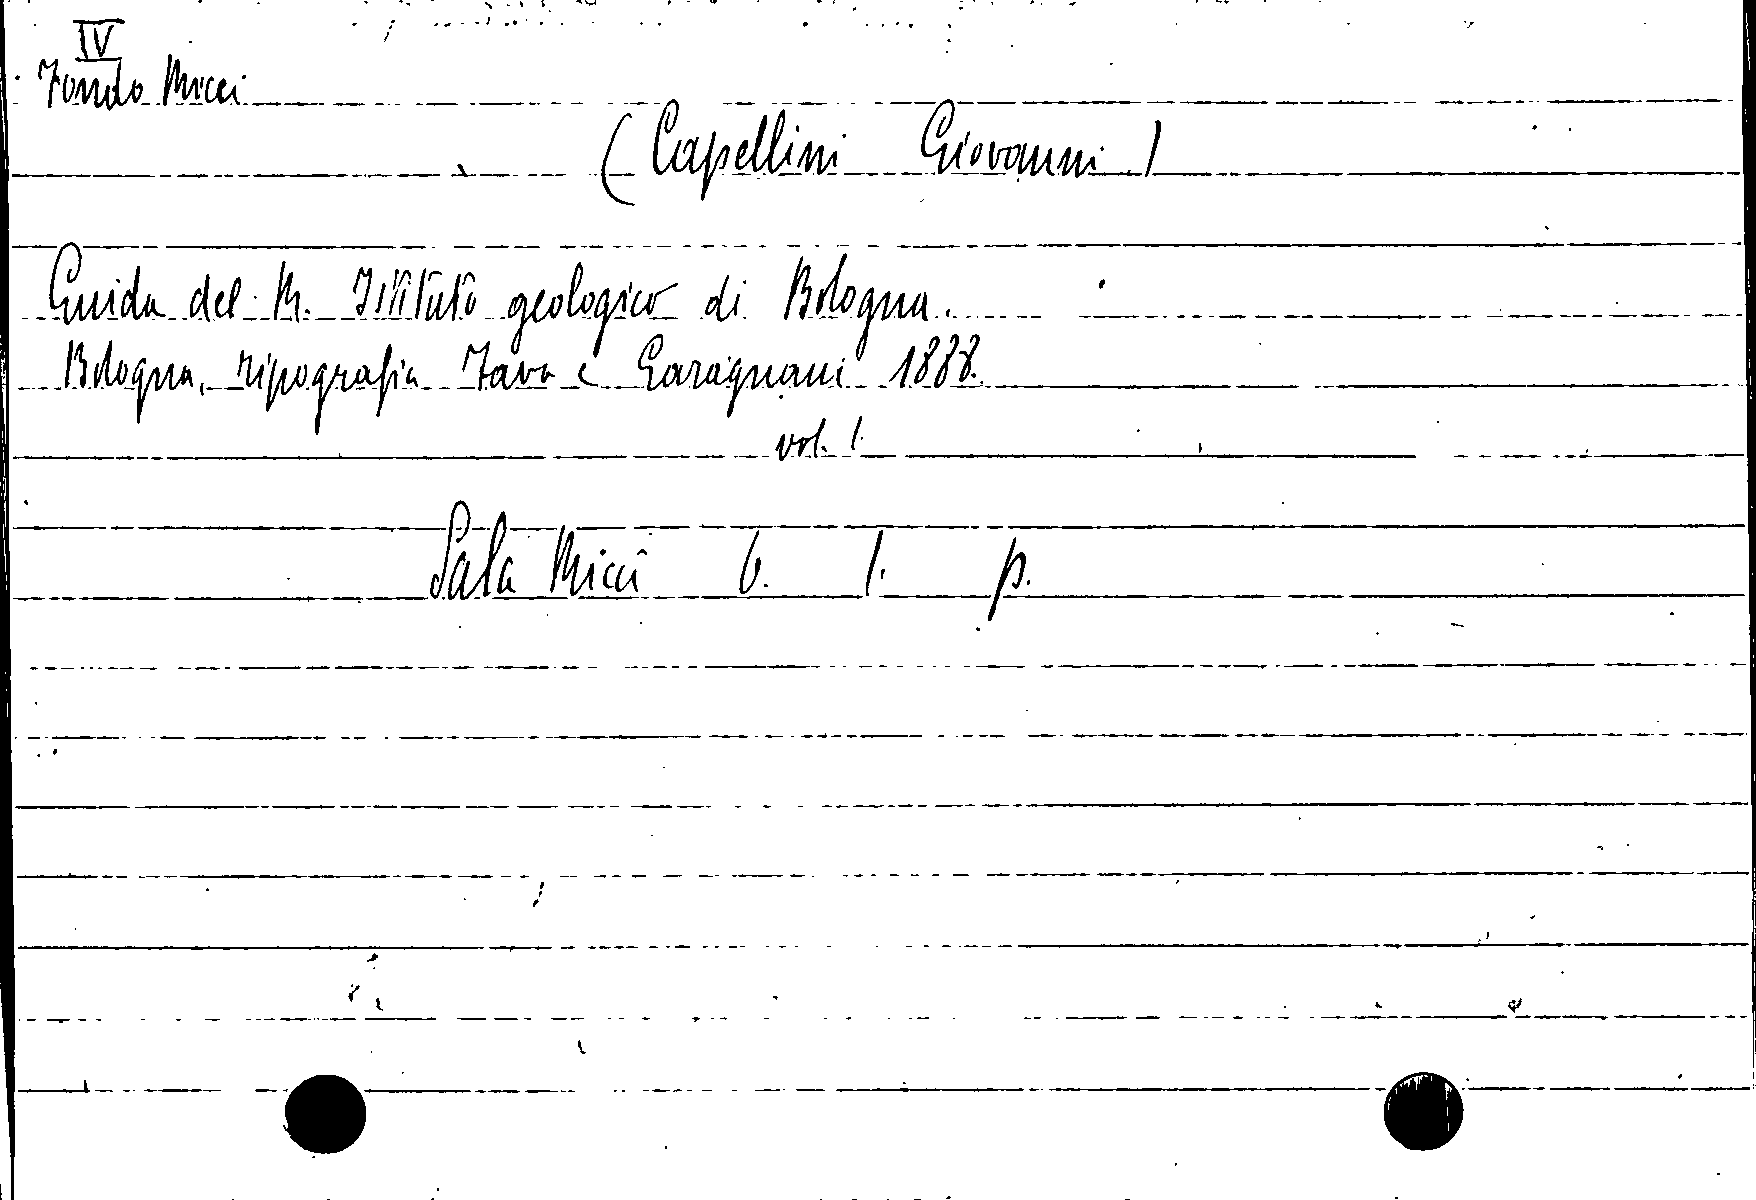 IV
Fondo Micci
(Capellini Giovanni)
Guida del R. Istituto geologico di Bologna.
Bologna, Tipografia Fava e Garagnani 1888.
vol. 1.
Sala Micci 6. 1. p.